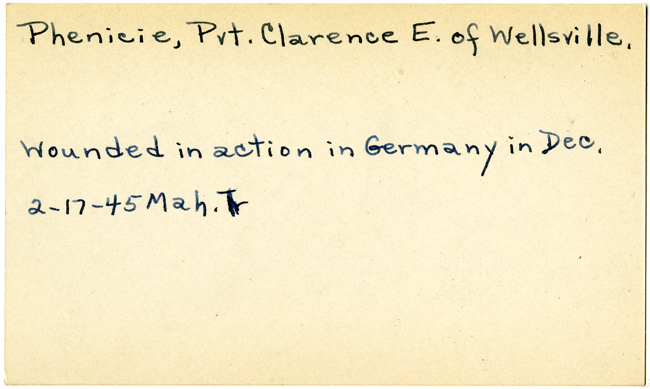 Phenicie, Pvt. Clarence E. of Wellsville.
Wounded in action in Germany in Dec.
2-17-45 Mah. Tr